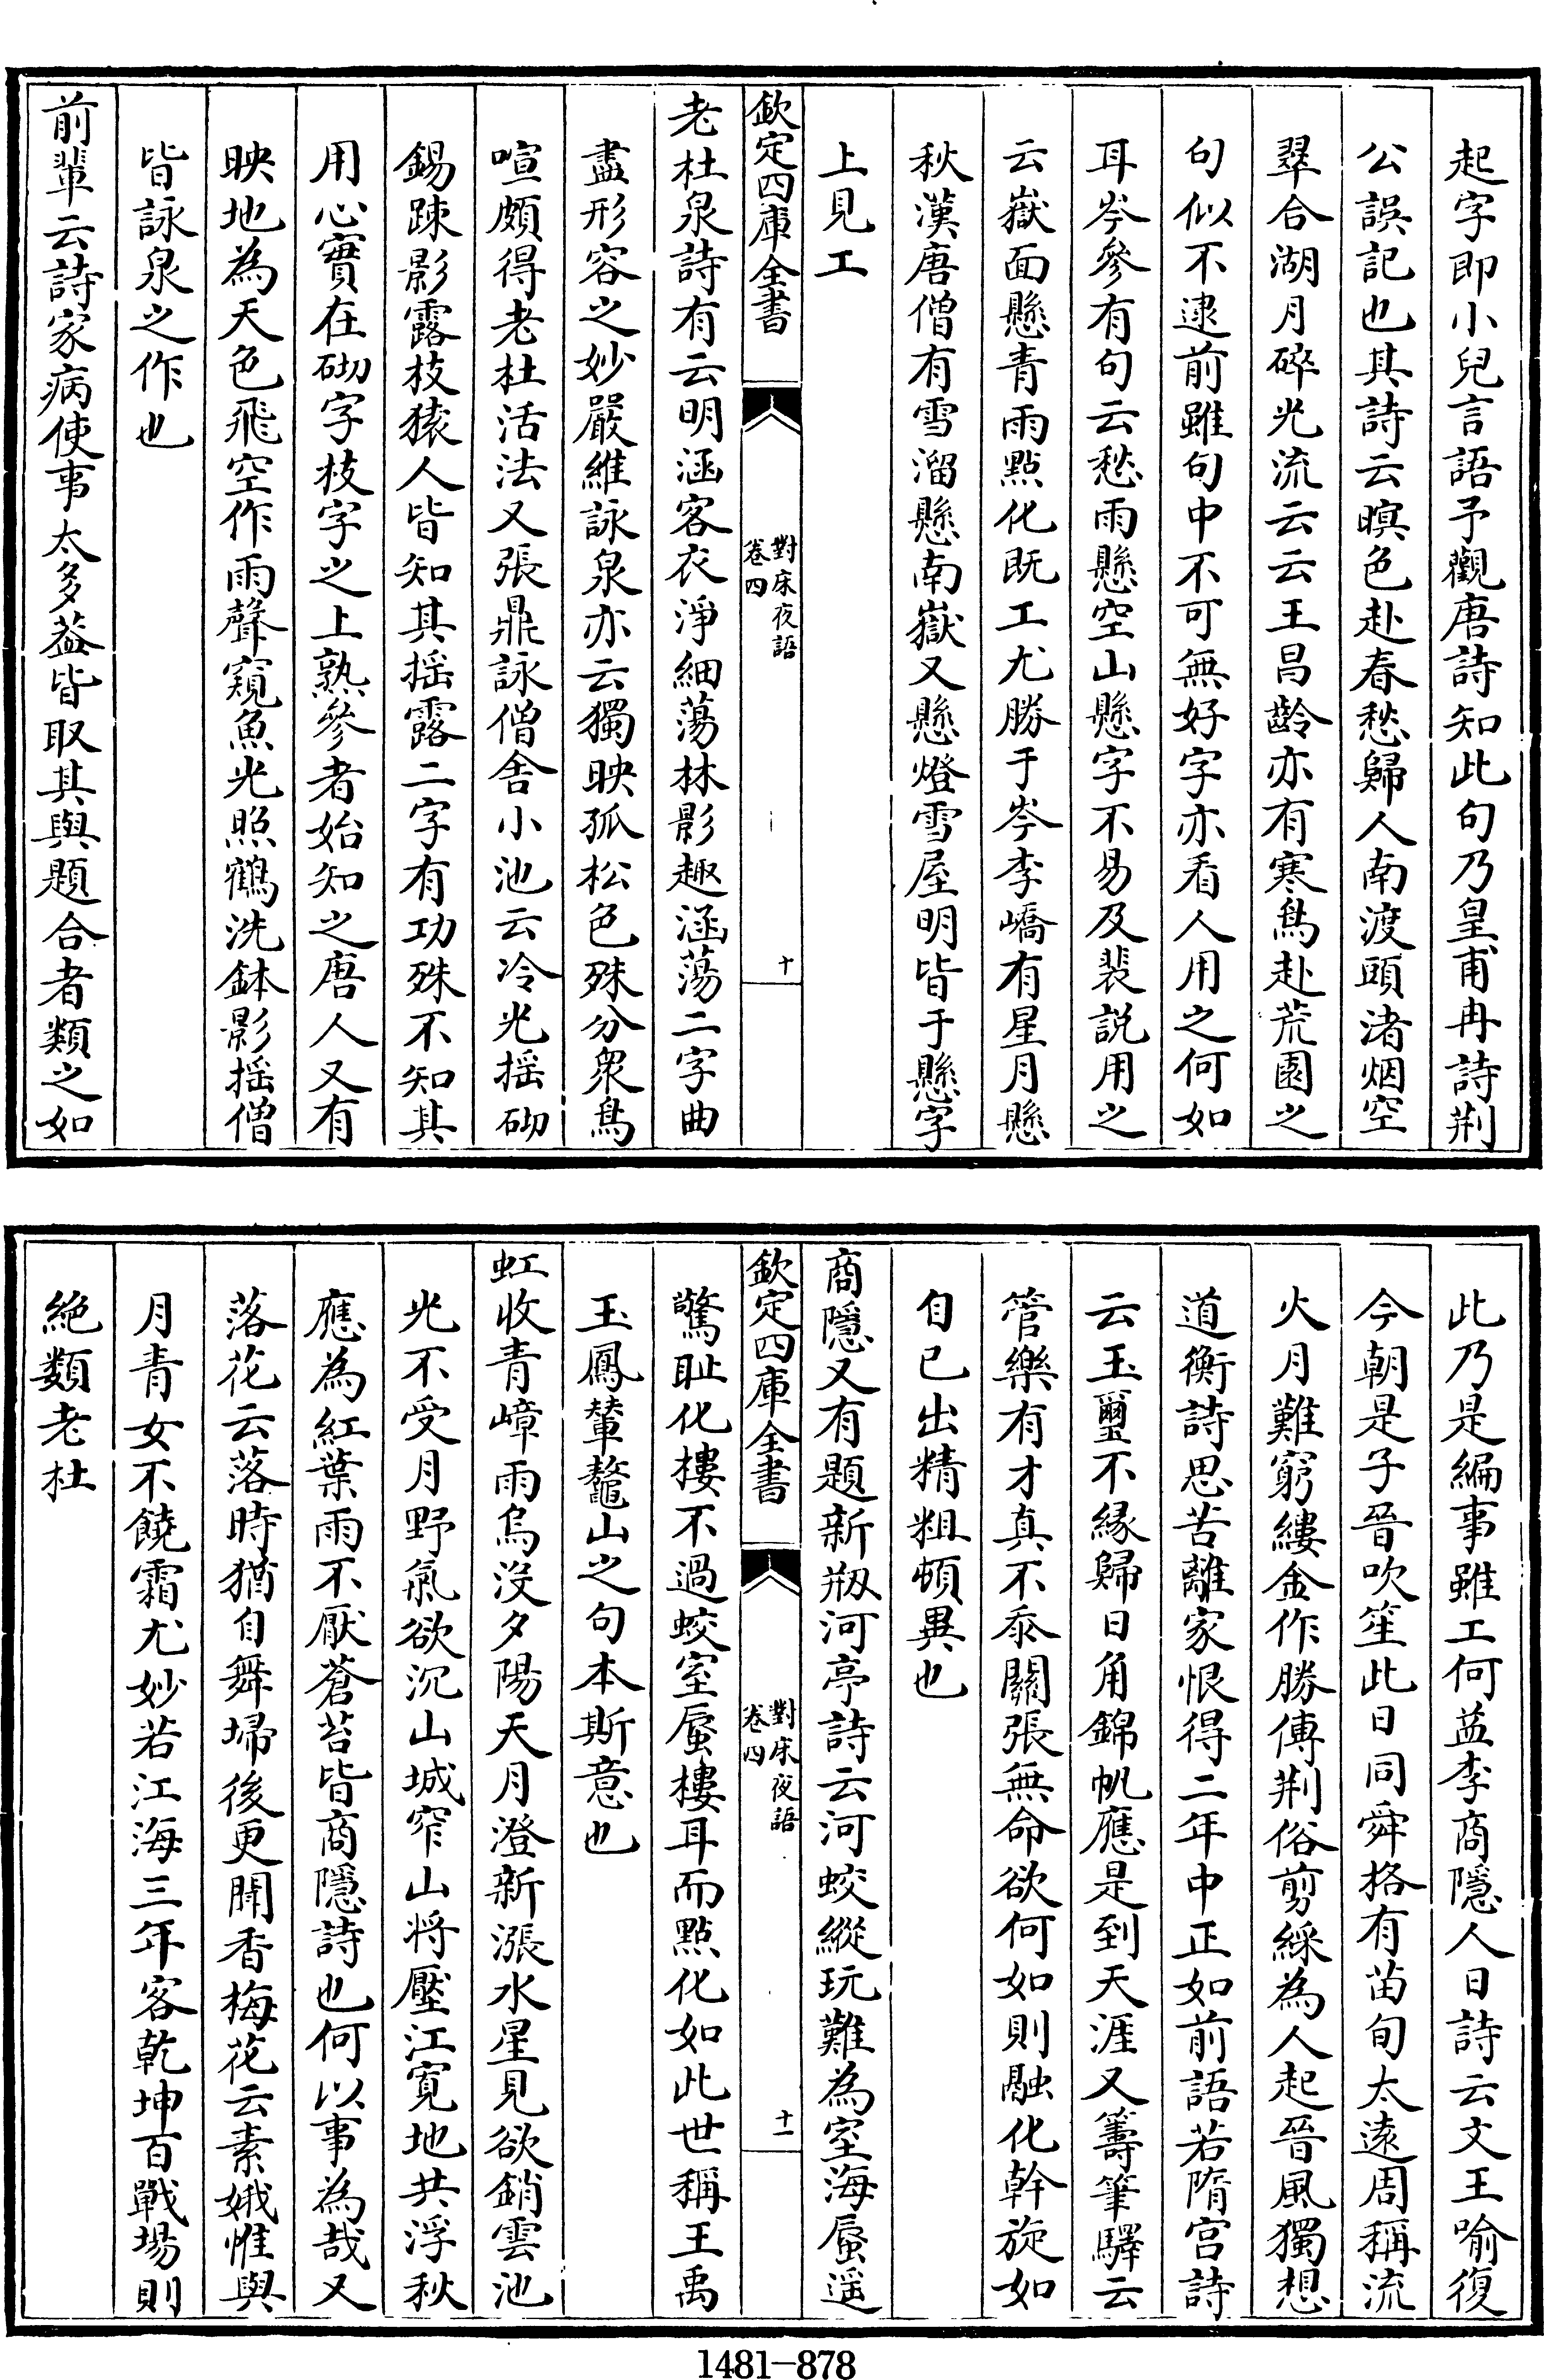 起字即小兒言語予觀唐詩知此句乃皇甫冉詩荆
公誤記也其詩云暝色赴春愁歸人南渡頭渚烟空
翠合湖月碎光流云云王昌齡亦有寒鳥赴荒園之
句似不逮前雖句中不可無好字亦看人用之何如
耳岑參有句云愁雨懸空山懸字不易及裴説用之
云嶽面懸青雨點化既工尤勝于岑李嶠有星月懸
秋漢唐僧有雪溜懸南嶽又懸燈雪屋明皆于懸字
上見工
欽定四庫全書
對床夜語
卷四
十
老杜泉詩有云明涵客衣淨細蕩林影趣涵蕩二字曲
盡形容之妙嚴維詠泉亦云獨映孤松色殊分衆鳥
喧頗得老杜活法又張鼎詠僧舎小池云冷光揺砌
錫踈影露枝猿人皆知其揺露二字有功殊不知其
用心實在砌字枝字之上熟參者始知之唐人又有
映地為天色飛空作雨聲窺魚光照鶴洗鉢影揺僧
皆詠泉之作也
前輩云詩家病使事太多葢皆取其與題合者類之如
此乃是編事雖工何益李商隱人日詩云文王喻復
今朝是子晉吹笙此日同舜格有苗旬太遠周稱流
火月難窮縷金作勝傳荆俗剪綵為人起晉風獨想
道衡詩思苦離家恨得二年中正如前語若隋宫詩
云玉璽不縁歸日角錦帆應是到天涯又籌筆驛云
管樂有才真不忝關張無命欲何如則融化斡旋如
自已出精粗頓異也
商隱又有題新剏河亭詩云河蛟縱玩難為室海蜃遥
欽定四庫全書
對床夜語
卷四
十一
驚耻化樓不過蛟室蜃樓耳而點化如此世稱王禹
玉鳳輦鼇山之句本斯意也
虹收青嶂雨鳥没夕陽天月澄新漲水星見欲銷雲池
光不受月野氣欲沉山城窄山将壓江寛地共浮秋
應為紅葉雨不厭蒼苔皆商隱詩也何以事為哉又
落花云落時猶自舞埽後更聞香梅花云素娥惟與
月青女不饒霜尤妙若江海三年客乾坤百戰場則
絶類老杜
1481-878